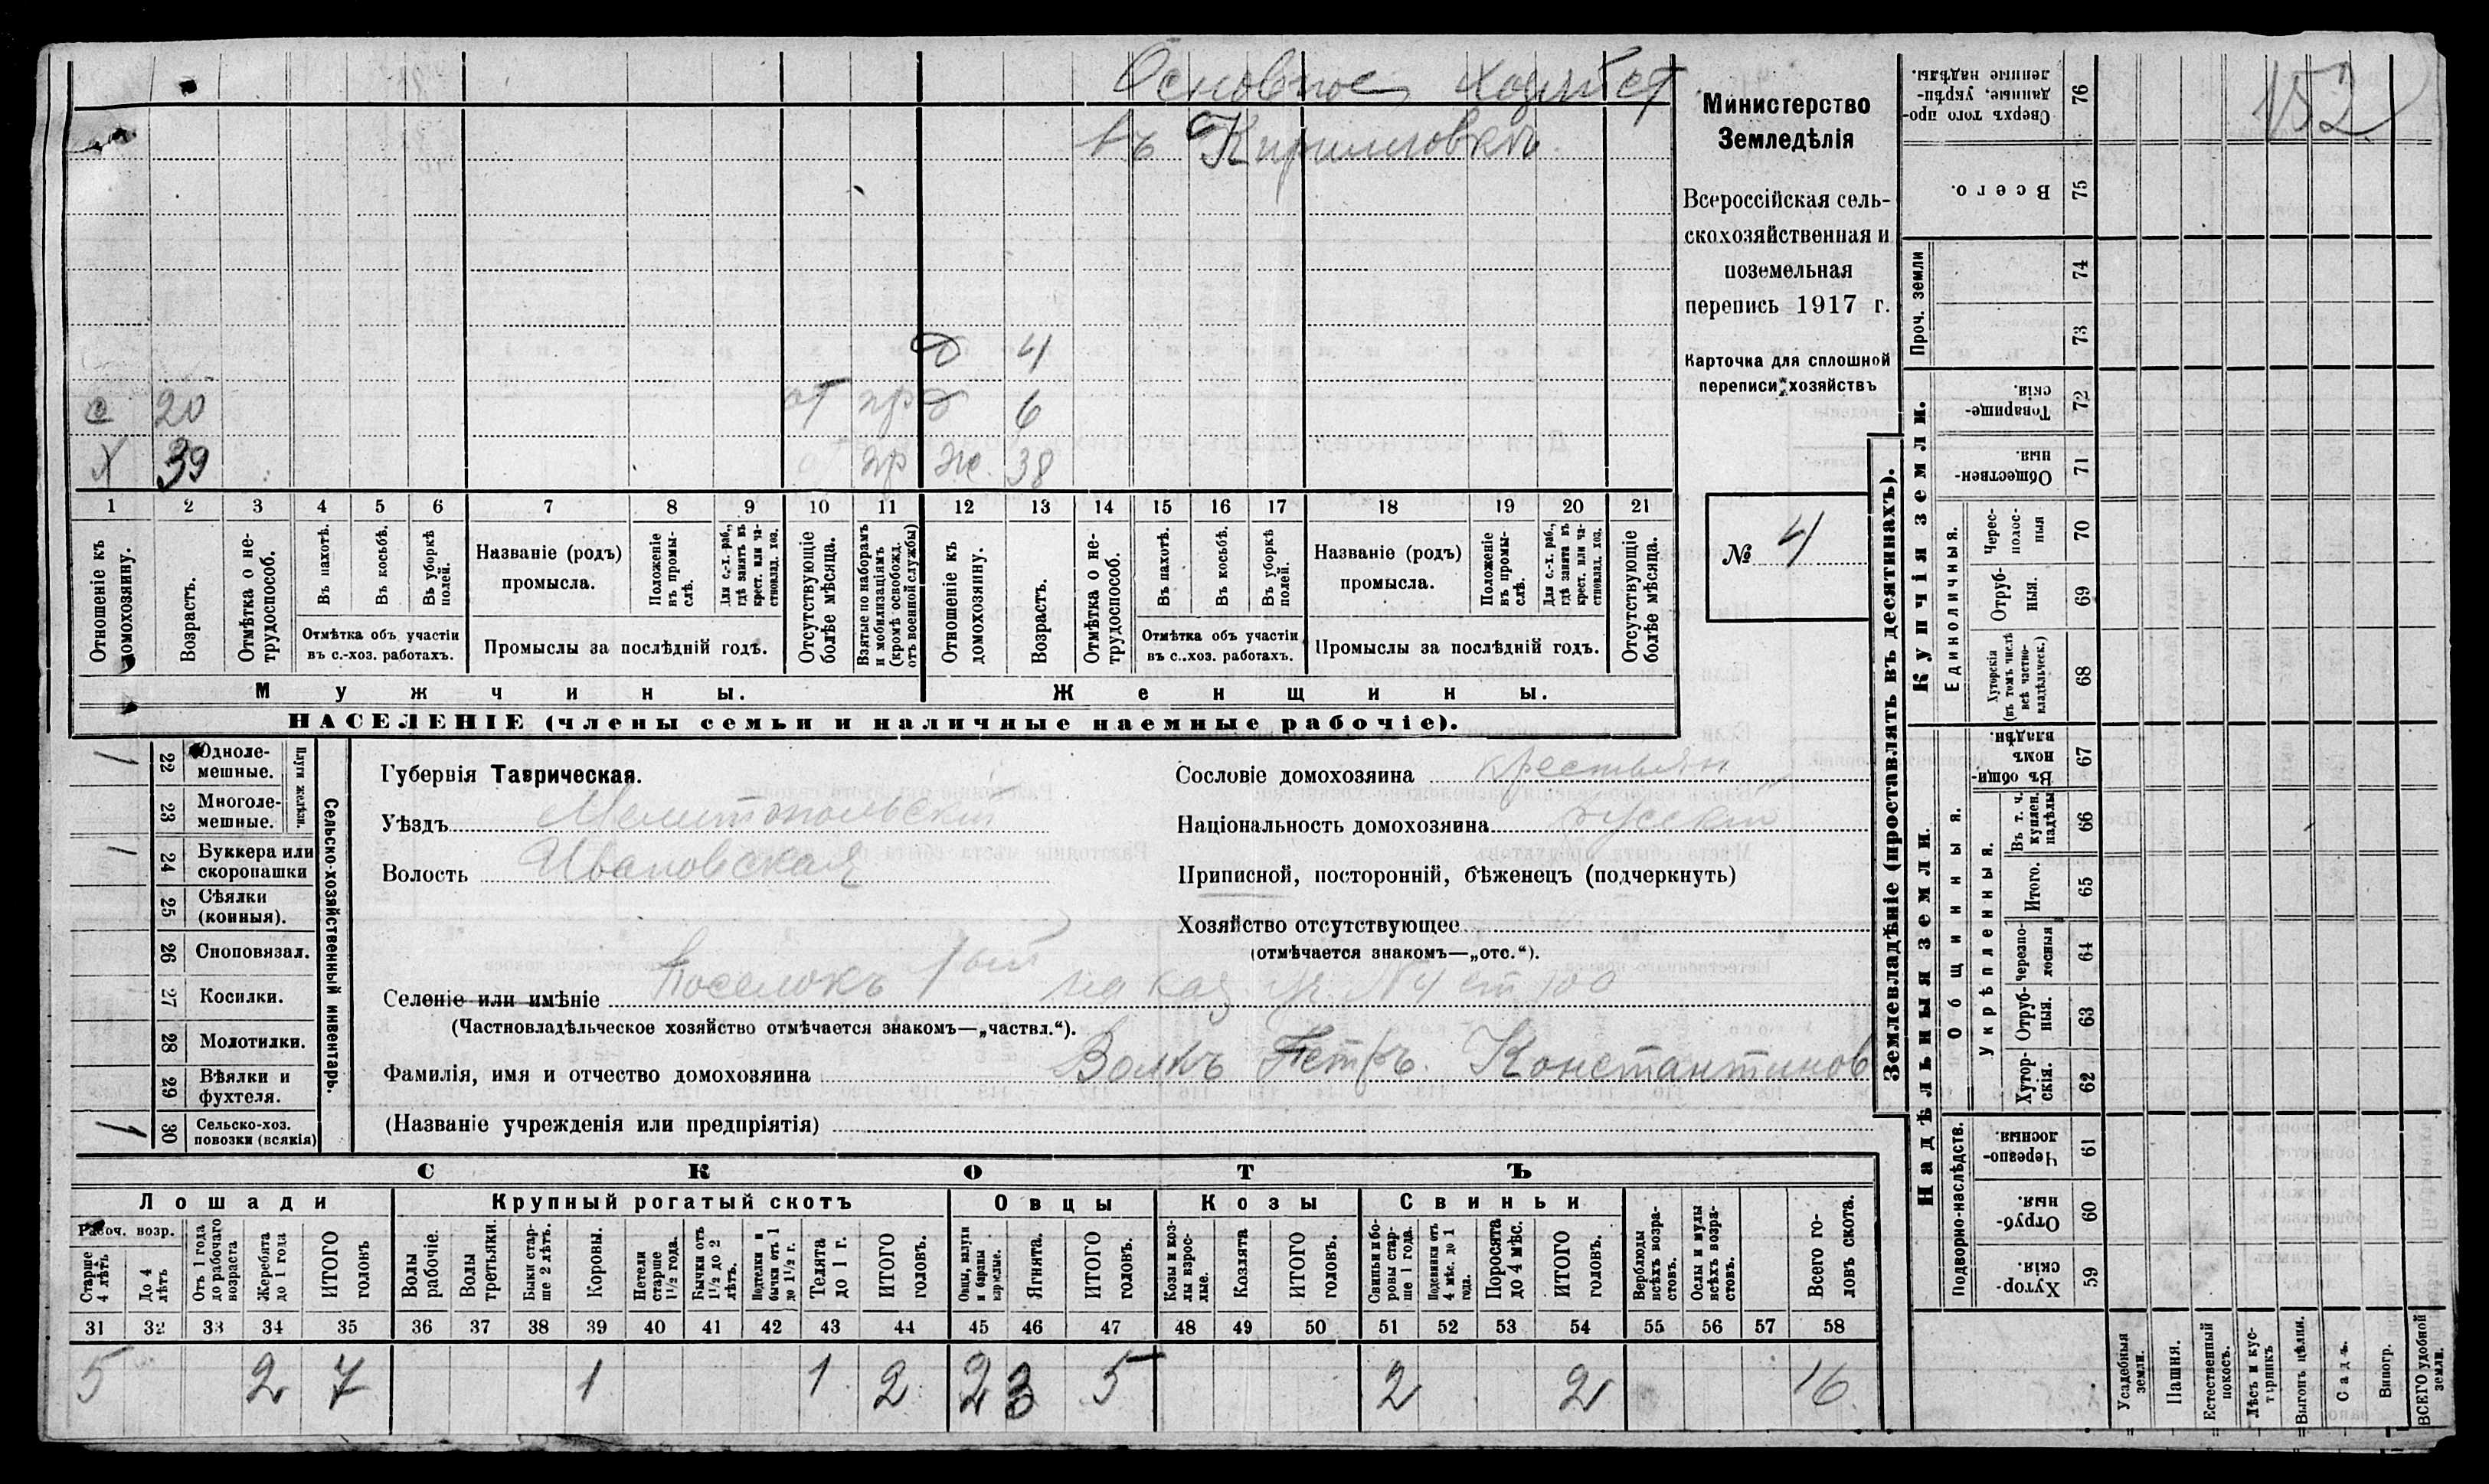 Основное хозяйст
въ Кирилловкѣ
д 4
с 20 от пр д 6
Х 39 от пр ж. 38
1 2 3 4 5 6 7 8 9 10 11 12 13 14 15 16 17 18 19 20 21
Отношеніе къ домохозяину.
Возрастъ.
Отмѣтка о нетрудоспособ.
Въ пахотѣ.
Въ косьбѣ.
Въ уборкѣ полей.
Отмѣтка объ участіи
въ с.-хоз. работахъ.
Названіе (родъ)
промысла.
Положеніе въ промыслѣ.
Для с.-х. раб., гдѣ занятъ въ крест. или частновлад. хоз.
Промыслы за послѣдній годъ.
Отсутствующіе болѣе мѣсяца.
Взятые по наборамъ и мобилизаціямъ (кромѣ освобожд. отъ военной службы)
Отношеніе къ домохозяину.
Возрастъ.
Отмѣтка о нетрудоспособ.
Въ пахотѣ.
Въ косьбѣ.
Въ уборкѣ полей.
Отмѣтка объ участіи
въ с.-хоз. работахъ.
Названіе (родъ)
промысла.
Положеніе въ промыслѣ.
Для с.-х. раб., гдѣ занята въ крест. или частновлад. хоз.
Промыслы за послѣдній годъ.
Отсутствующіе болѣе мѣсяца.
Мужчины.
Женщины.
НАСЕЛЕНІЕ (члены семьи и наличные наемные рабочіе).
Министерство
Земледѣлія
Всероссійская сель-
скохозяйственная и
поземельная
перепись 1917 г.
Карточка для сплошной
переписи хозяйствъ
№ 4
1 22 Одноле-
мешные.
23 Многоле-
мешные.
Плуги желѣзн.
1 24 Буккера или
скоропашки
25 Сѣялки
(конныя).
26 Сноповязал.
27 Косилки.
28 Молотилки.
29 Вѣялки и
фухтеля.
1 30 Сельско-хоз.
повозки (всякія)
Сельско-хозяйственный инвентарь.
Губернія Таврическая.
Уѣздъ Мелитопольскій
Волость Ивановская
Сословіе домохозяина крестьян
Національность домохозяина русскій
Приписной, посторонній, бѣженецъ (подчеркнуть)
Хозяйство отсутствующее
(отмѣчается знакомъ—„отс.“).
Селеніе или имѣніе Поселокъ 1ый на каз уч №4 ст 100
(Частновладѣльческое хозяйство отмѣчается знакомъ—„частвл.“).
Фамилія, имя и отчество домохозяина Волкъ Петръ. Константинов
(Названіе учрежденія или предпріятія)
СКОТЪ
Лошади
Крупный рогатый скотъ
Овцы
Козы
Свиньи
Рабоч. возр.
Старше 4 лѣтъ
До 4 лѣтъ
Отъ 1 года до рабочаго возраста
Жеребята до 1 года
ИТОГО головъ
Волы рабочіе.
Волы третьяки.
Быки старше 2 лѣтъ.
Коровы.
Нетели старше 1½ года.
Бычки отъ 1½ до 2 лѣтъ.
Подтелки и бычки отъ 1 до 1½ г.
Телята до 1 г.
ИТОГО головъ.
Овцы, валухи и бараны взрослые.
Ягнята.
ИТОГО головъ.
Козы и козлы взрослые.
Козлята
ИТОГО головъ.
Свиньи и боровы старше 1 года.
Подсвинки отъ 4 мѣс. до 1 года.
Поросята до 4 мѣс.
ИТОГО головъ.
Верблюды всѣхъ возрастовъ.
Ослы и мулы всѣхъ возрастовъ.
Всего головъ скота.
31 32 33 34 35 36 37 38 39 40 41 42 43 44 45 46 47 48 49 50 51 52 53 54 55 56 57 58
5 2 7 1 1 2 2 3 5 2 2 16
Землевладѣніе (проставлять въ десятинахъ).
152
76 Сверхъ того проданные, укрѣпленные надѣлы.
75 Всего.
Проч. земли
74
73
Купчія земли.
72 Товарищескія.
71 Общественныя.
Единоличныя.
70 Чересполосныя
69 Отрубныя.
68 Хуторскія (въ томъ числѣ всѣ частновладѣльческ.)
Надѣльныя земли.
Общинныя.
67 Въ общинномъ владѣн.
Укрѣпленныя.
66 Въ т. ч. куплен. надѣлы
65 Итого.
64 Черезполосныя
63 Отрубныя.
62 Хуторскія.
Подворно-наслѣдств.
61 Черезполосныя.
60 Отрубныя.
59 Хуторскія.
Усадебныя земли.
Пашня.
Естественный покосъ.
Лѣсъ и кустарникъ
Выгонъ цѣлин.
Садъ.
Виногр.
ВСЕГО удобной земли.